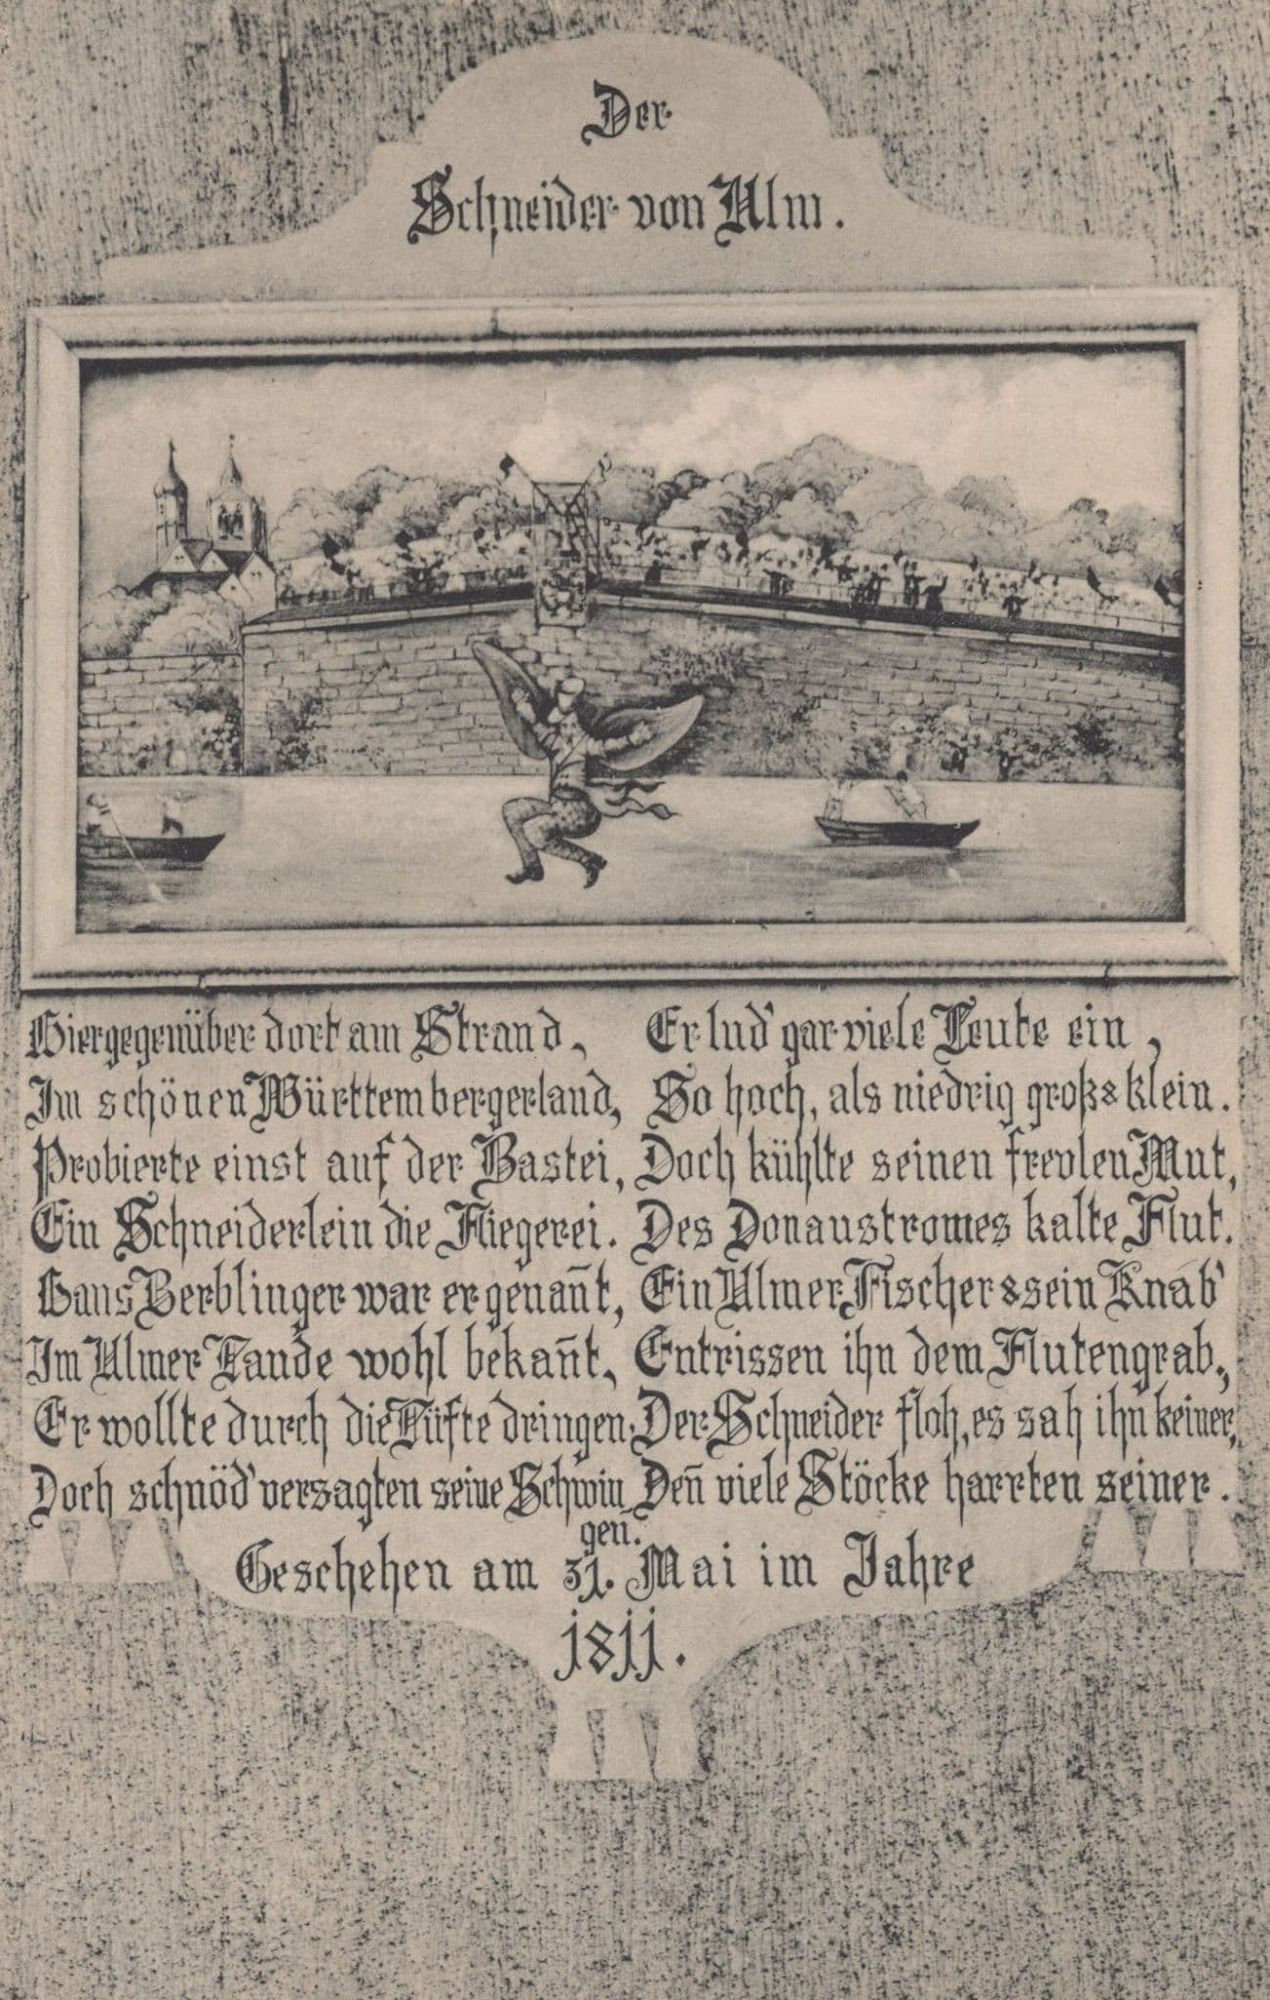 Der
Schneider von Ulm.
Hiergegenüber dort am Strand,
Im schönen Württembergerland,
Probierte einst auf der Bastei,
Ein Schneiderlein die Fliegerei.
Hans Berblinger war er genañt,
Im Ulmer Lande wohl bekañt,
Er wollte durch die Lüfte dringen.
Doch schnöd' versagten seine Schwin
gen.
Er lud' gar viele Leute ein,
So hoch, als niedrig groß & klein.
Doch kühlte seinen frevlen Mut,
Des Donaustromes kalte Flut.
Ein Ulmer Fischer & sein Knab'
Entrissen ihn dem Flutengrab.,
Der Schneider floh, es sah ihn keiner,
Den̄ viele Stöcke harrten seiner.
Geschehen am 31. Mai im Jahre
1811.